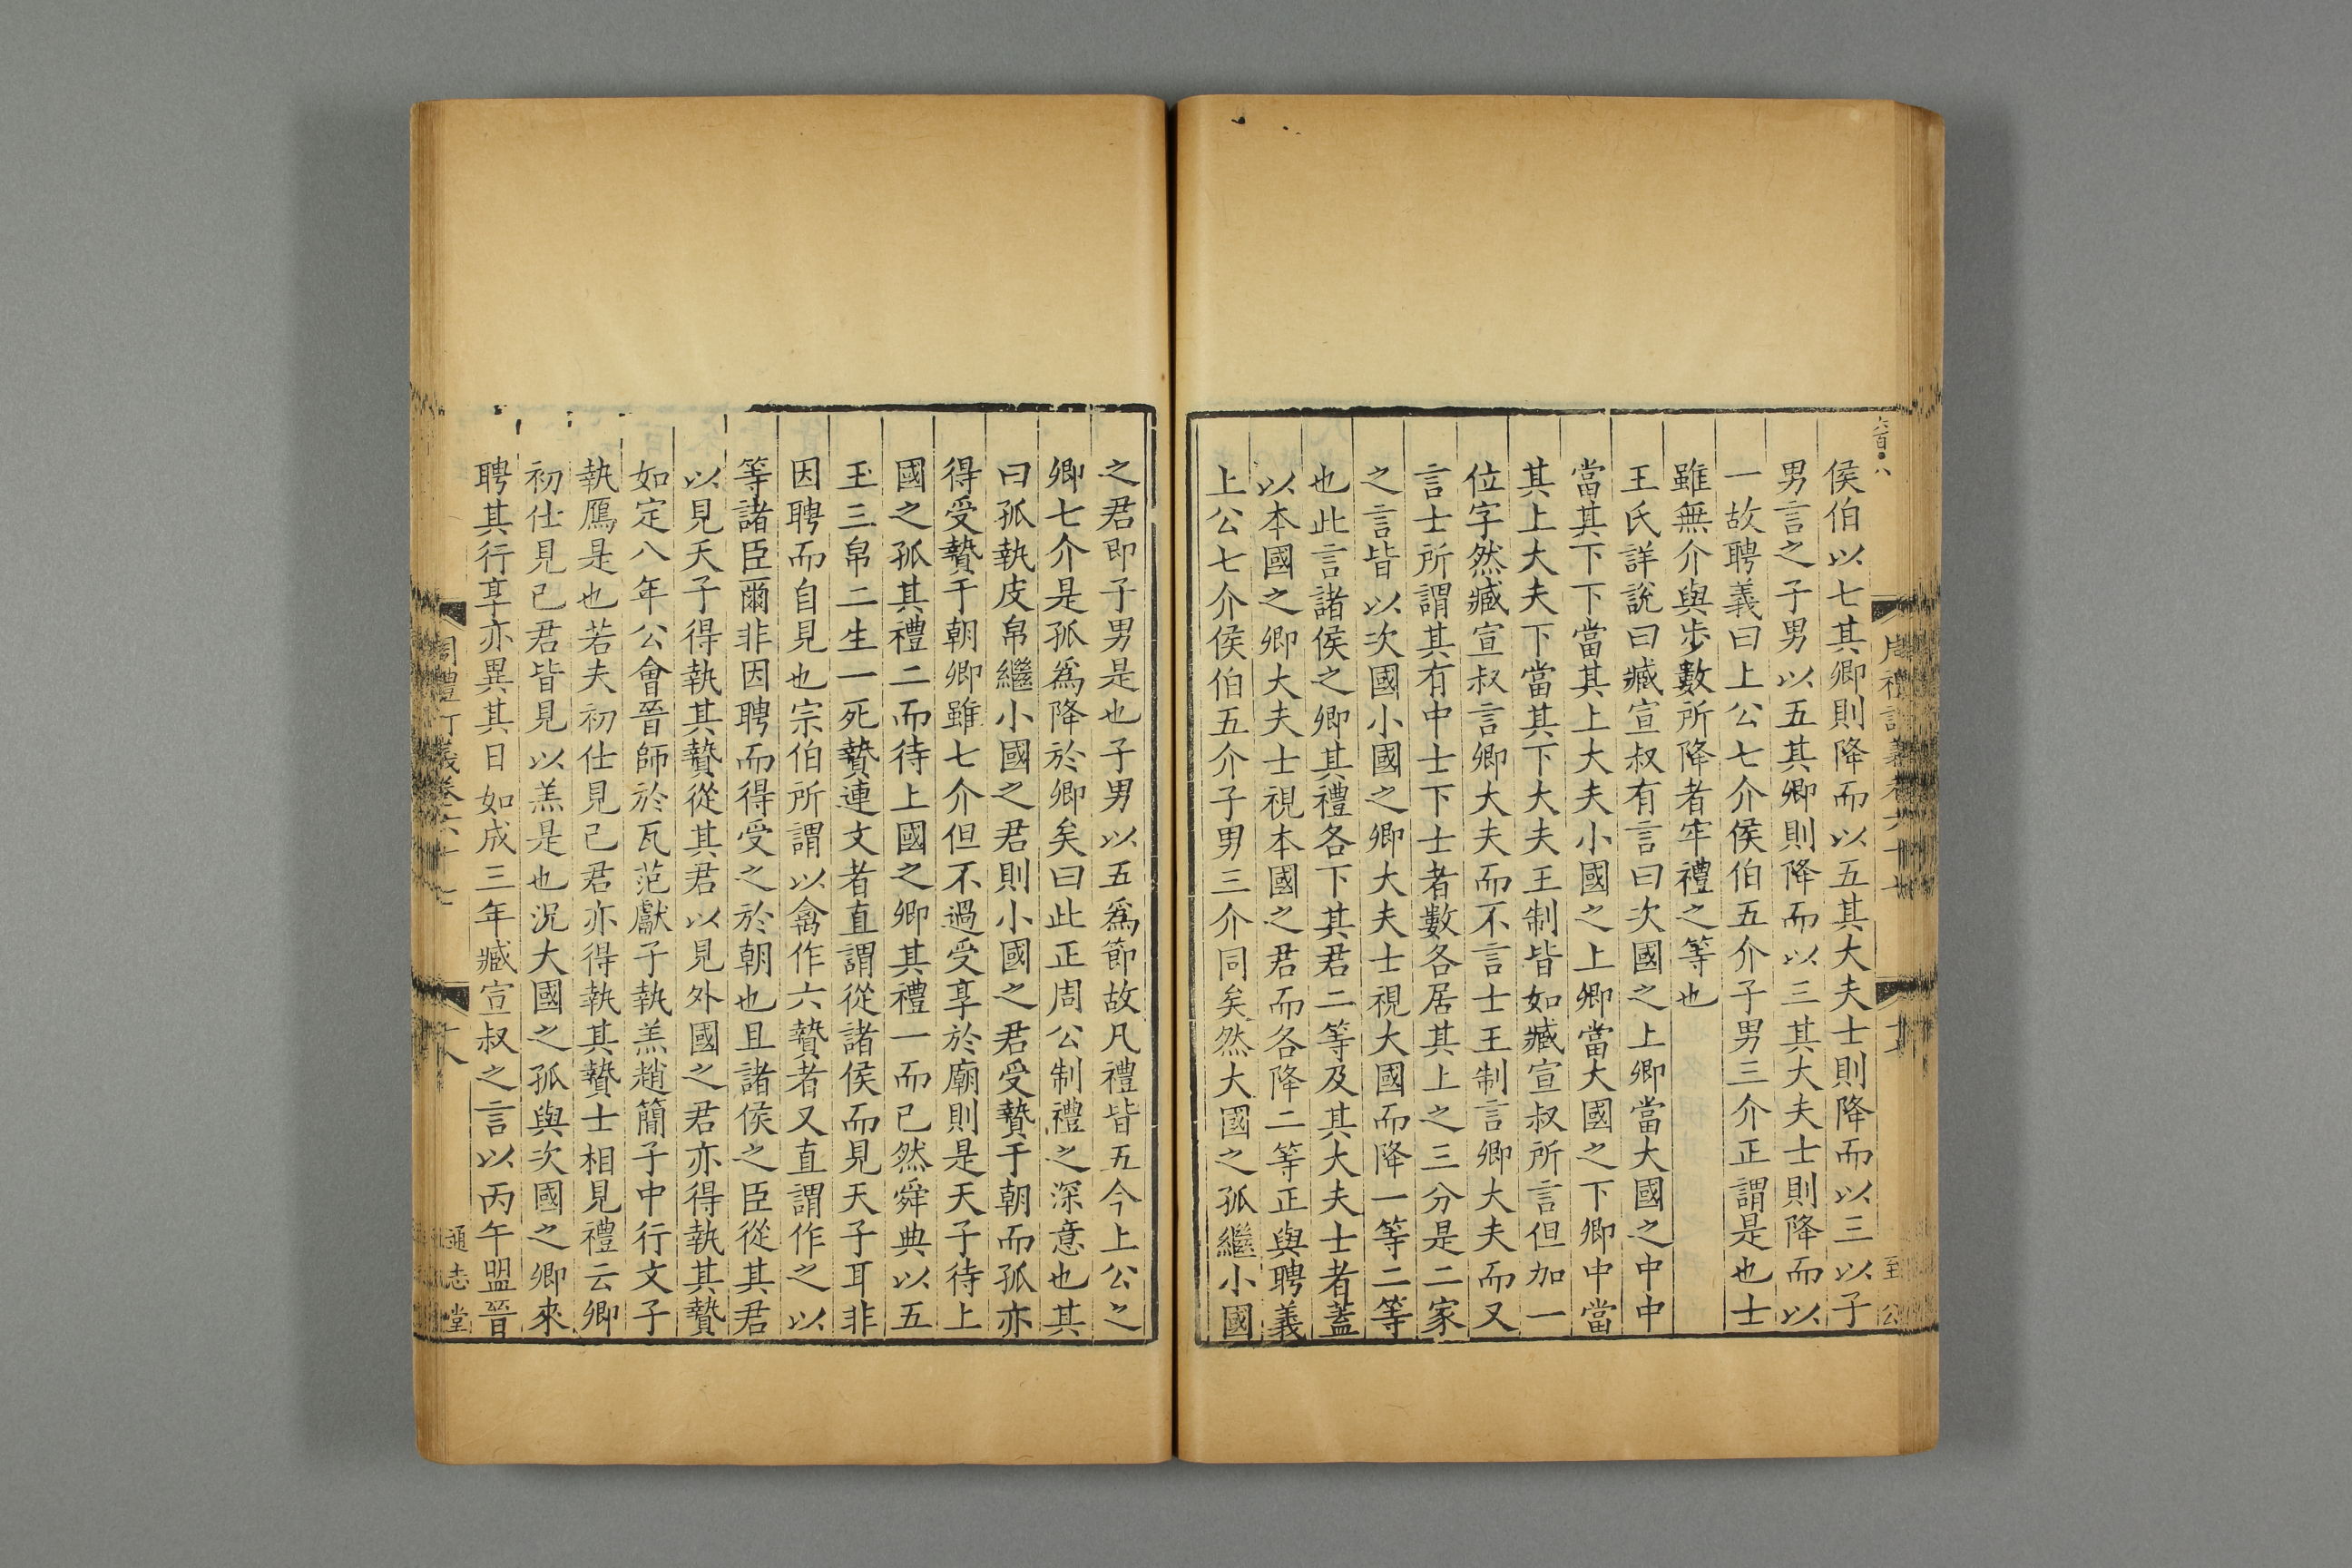 侯伯以七其卿則降而以五其大夫士則降而以三以子
男言之子男以五其卿則降而以三其大夫士則降而以
一故聘義曰上公七介侯伯五介子男三介正謂是也士
雖無介與步數所降者牢禮之等也
王氏詳說曰臧宣叔有言曰次國之上卿當大國之中中
當其下下當其上大夫小國之上卿當大國之下卿中當
其上大夫下當其下大夫王制皆如臧宣叔所言但加一
位字然臧宣叔言卿大夫而不言士王制言卿大夫而又
言士所謂其有中士下士者數各居其上之三分是二家
之言皆以次國小國之卿大夫士視大國而降一等二等
也此言諸侯之卿其禮各下其君二等及其大夫士者蓋
以本國之卿大夫士視本國之君而各降二等正與聘義
上公七介侯伯五介子男三介同矣然大國之孤繼小國
之君即子男是也子男以五爲節故凡禮皆五今上公之
卿七介是孤爲降於卿矣曰此正周公制禮之深意也其
曰孤執皮帛繼小國之君則小國之君受贄于朝而孤亦
得受贄于朝卿雖七介但不過受享於廟則是天子待上
國之孤其禮二而待上國之卿其禮一而已然舜典以五
玉三帛二生一死贄連文者直謂從諸侯而見天子耳非
因聘而自見也宗伯所謂以禽作六贄者又直謂作之以
等諸臣爾非因聘而得受之於朝也且諸侯之臣從其君
以見天子得執其贄從其君以見外國之君亦得執其贄
如定八年公會晉師於瓦范獻子執羔趙簡子中行文子
執鴈是也若夫初仕見己君亦得執其贄士相見禮云卿
初仕見己君皆見以羔是也況大國之孤與次國之卿來
聘其行享亦異其日如成三年臧宣叔之言以丙午盟晉
周禮訂義卷六十七
十八
通志堂